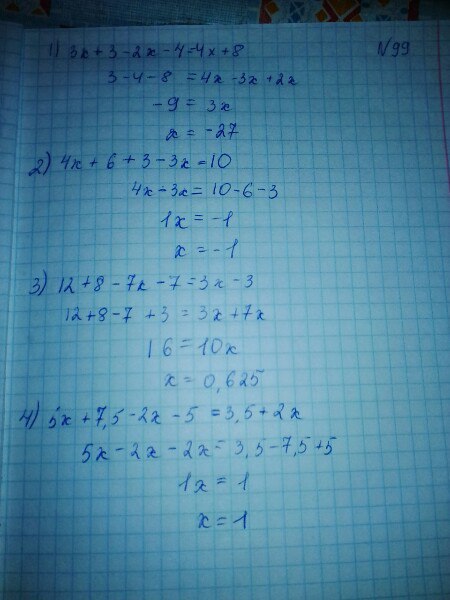 N99
1) 3x + 3 - 2x - 4 = 4x + 8
3 - 4 - 8 = 4x - 3x + 2x
-9 = 3x
x = -27
2) 4x + 6 + 3 - 3x = 10
4x - 3x = 10 - 6 - 3
1x = -1
x = -1
3) 12 + 8 - 7x - 7 = 3x - 3
12 + 8 - 7 + 3 = 3x + 7x
16 = 10x
x = 0,625
4) 5x + 7,5 - 2x - 5 = 3,5 + 2x
5x - 2x - 2x = 3,5 - 7,5 + 5
1x = 1
x = 1